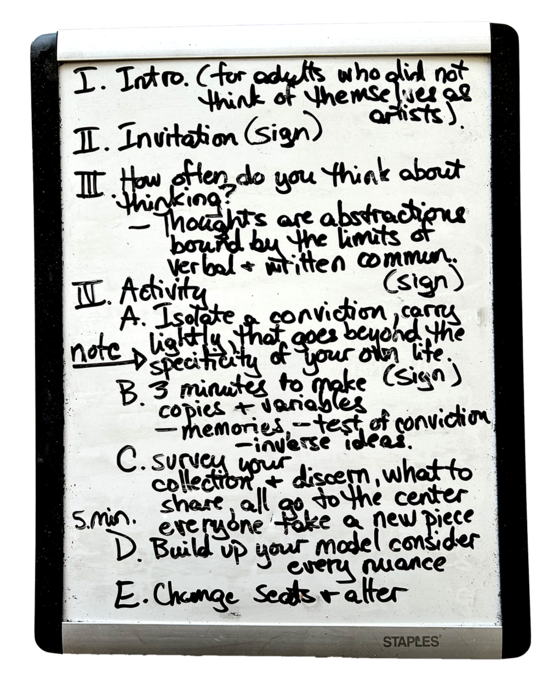 I. Intro. (for adults who did not
think of themselves as
artists).
II. Invitation (sign)
III How often do you think about
thinking?
- Thoughts are abstractions
bound by the limits of
verbal + written commun.
(sign)
IV. Activity
A. Isolate a conviction, carry
lightly, that goes beyond the
note → specificity of your own life.
(sign)
B. 3 minutes to make
copies + variables
- memories, - test of conviction
- inverse ideas.
C. survey your
collection + discern, what to
share, all go to the center
5.min. everyone take a new piece
D. Build up your model consider
every nuance
E. Change seats + alter
STAPLES